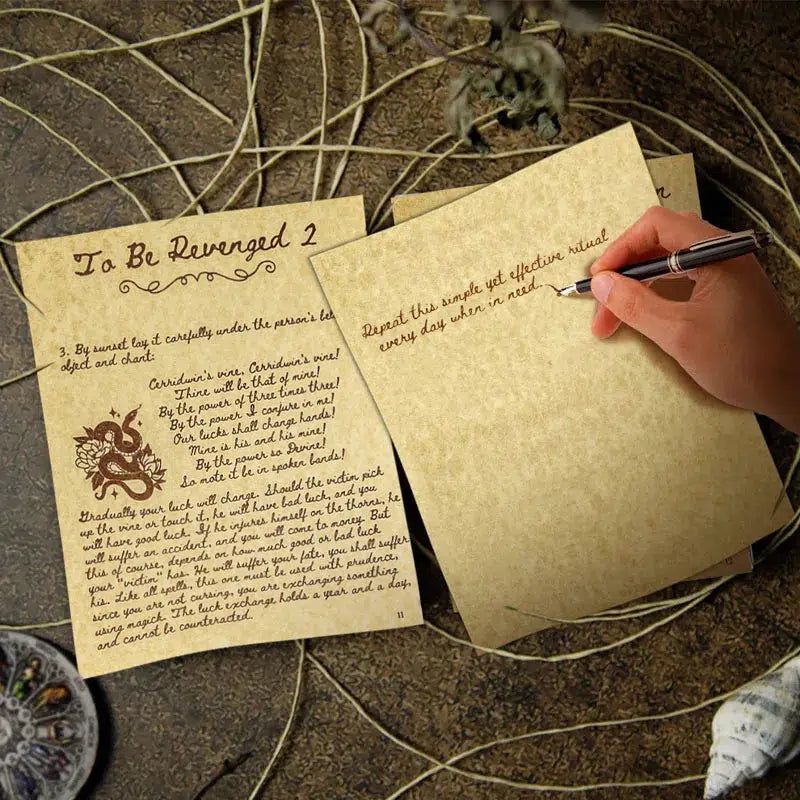 To Be Revenged 2
3. By sunset lay it carefully under the person's
object and chant:
Cerridwin's vine, Cerridwin's vine!
Thine will be that of mine!
By the power of three times three!
By the power I conjure in me!
Our lucks shall change hands!
Mine is his and his mine!
By the power so Devine!
So mote it be in spoken bands!
Gradually your luck will change. Should the victim pick
up the vine or touch it, he will have bad luck, and you
will have good luck. If he injures himself on the thorns, he
will suffer an accident, and you will come to money. But
this of course, depends on how much good or bad luck
your "victim" has. He will suffer your fate, you shall suffer
his. Like all spells, this one must be used with prudence,
since you are not cursing, you are exchanging something
using magick. The luck exchange holds a year and a day,
and cannot be counteracted.
11
Repeat this simple yet effective ritual
every day when in need.